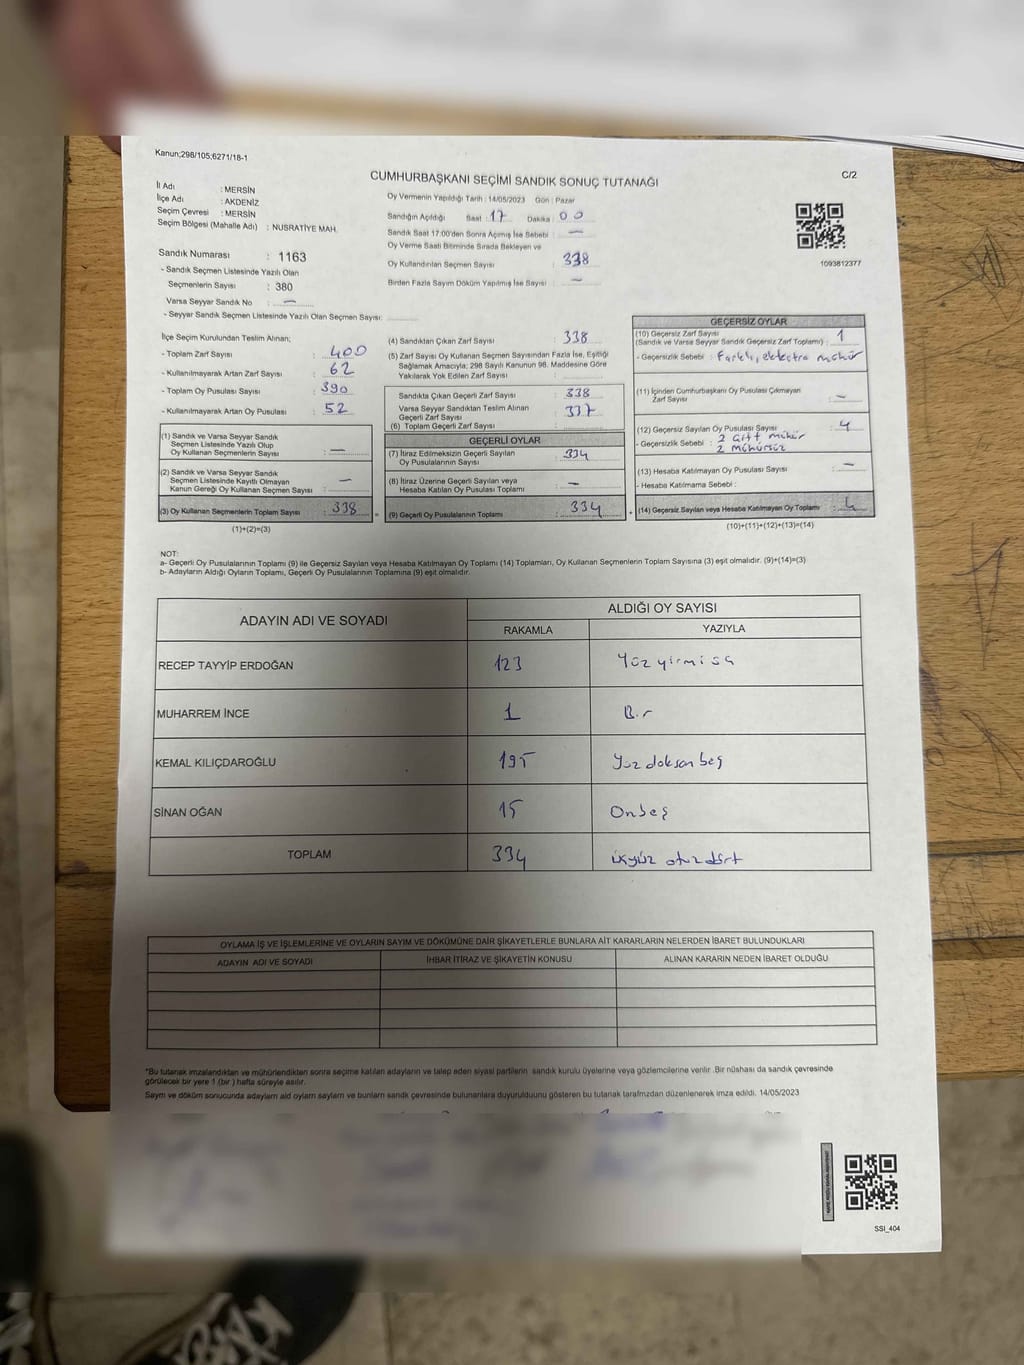 Kanun;298/105;6271/18-1
CUMHURBAŞKANI SEÇİMİ SANDIK SONUÇ TUTANAĞI
C/2
İl Adı : MERSİN
İlçe Adı : AKDENİZ
Seçim Çevresi : MERSİN
Seçim Bölgesi (Mahalle Adı) : NUSRATİYE MAH.
Sandık Numarası : 1163
- Sandık Seçmen Listesinde Yazılı Olan
Seçmenlerin Sayısı : 380
Varsa Seyyar Sandık No : —
- Seyyar Sandık Seçmen Listesinde Yazılı Olan Seçmen Sayısı:
Oy Vermenin Yapıldığı Tarih : 14/05/2023 Gün : Pazar
Sandığın Açıldığı Saat : 17 Dakika : 00
Sandık Saat 17:00'den Sonra Açılmış İse Sebebi : —
Oy Verme Saati Bitiminde Sırada Bekleyen ve
Oy Kullandırılan Seçmen Sayısı : 338
Birden Fazla Sayım Döküm Yapılmış İse Sayısı : —
1093812377
İlçe Seçim Kurulundan Teslim Alınan;
- Toplam Zarf Sayısı : 400
- Kullanılmayarak Artan Zarf Sayısı : 62
- Toplam Oy Pusulası Sayısı : 390
- Kullanılmayarak Artan Oy Pusulası : 52
(1) Sandık ve Varsa Seyyar Sandık
Seçmen Listesinde Yazılı Olup
Oy Kullanan Seçmenlerin Sayısı : —
(2) Sandık ve Varsa Seyyar Sandık
Seçmen Listesinde Kayıtlı Olmayan
Kanun Gereği Oy Kullanan Seçmen Sayısı : —
(3) Oy Kullanan Seçmenlerin Toplam Sayısı : 338
(1)+(2)=(3)
(4) Sandıktan Çıkan Zarf Sayısı : 338
(5) Zarf Sayısı Oy Kullanan Seçmen Sayısından Fazla İse, Eşitliği
Sağlamak Amacıyla; 298 Sayılı Kanunun 98. Maddesine Göre
Yakılarak Yok Edilen Zarf Sayısı :
Sandıkta Çıkan Geçerli Zarf Sayısı : 338
Varsa Seyyar Sandıktan Teslim Alınan : 337
Geçerli Zarf Sayısı
(6) Toplam Geçerli Zarf Sayısı :
GEÇERLİ OYLAR
(7) İtiraz Edilmeksizin Geçerli Sayılan
Oy Pusulalarının Sayısı : 334
(8) İtiraz Üzerine Geçerli Sayılan veya
Hesaba Katılan Oy Pusulası Toplamı : —
(9) Geçerli Oy Pusulalarının Toplamı : 334
GEÇERSİZ OYLAR
(10) Geçersiz Zarf Sayısı
(Sandık ve Varsa Seyyar Sandık Geçersiz Zarf Toplamı) : 1
- Geçersizlik Sebebi : Farklı, ekstra mühür
(11) İçinden Cumhurbaşkanı Oy Pusulası Çıkmayan
Zarf Sayısı : —
(12) Geçersiz Sayılan Oy Pusulası Sayısı : 4
- Geçersizlik Sebebi : 2 Çift mühür
2 mühürsüz
(13) Hesaba Katılmayan Oy Pusulası Sayısı : —
- Hesaba Katılmama Sebebi :
(14) Geçersiz Sayılan veya Hesaba Katılmayan Oy Toplamı : 4
(10)+(11)+(12)+(13)=(14)
NOT:
a- Geçerli Oy Pusulalarının Toplamı (9) ile Geçersiz Sayılan veya Hesaba Katılmayan Oy Toplamı (14) Toplamları, Oy Kullanan Seçmenlerin Toplam Sayısına (3) eşit olmalıdır. (9)+(14)=(3)
b- Adayların Aldığı Oyların Toplamı, Geçerli Oy Pusulalarının Toplamına (9) eşit olmalıdır.
ADAYIN ADI VE SOYADI
ALDIĞI OY SAYISI
RAKAMLA YAZIYLA
RECEP TAYYİP ERDOĞAN 123 Yüz yirmi üç
MUHARREM İNCE 1 Bir
KEMAL KILIÇDAROĞLU 195 Yüz doksan beş
SİNAN OĞAN 15 Onbeş
TOPLAM 334 üçyüz otuz dört
OYLAMA İŞ VE İŞLEMLERİNE VE OYLARIN SAYIM VE DÖKÜMÜNE DAİR ŞİKAYETLERLE BUNLARA AİT KARARLARIN NELERDEN İBARET BULUNDUKLARI
ADAYIN ADI VE SOYADI İHBAR İTİRAZ VE ŞİKAYETİN KONUSU ALINAN KARARIN NEDEN İBARET OLDUĞU
*Bu tutanak imzalandıktan ve mühürlendikten sonra seçime katılan adayların ve talep eden siyasi partilerin sandık kurulu üyelerine veya gözlemcilerine verilir .Bir nüshası da sandık çevresinde
görülecek bir yere 1 (bir ) hafta süreyle asılır.
Sayım ve döküm sonucunda adayların ald oyların sayların ve bunların sandık çevresinde bulunanlara duyurulduunu gösteren bu tutanak tarafmzdan düzenlenerek imza edildi. 14/05/2023
SSI_404